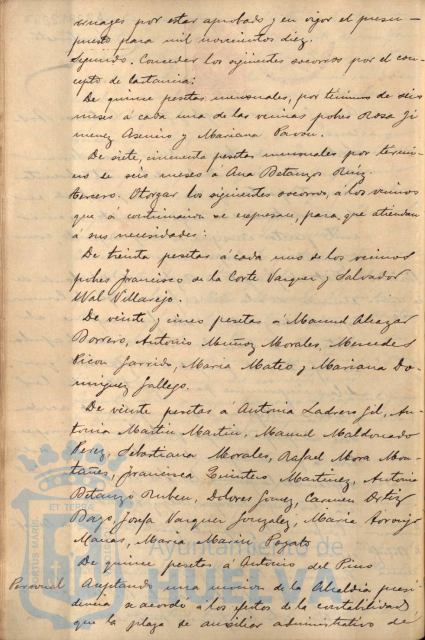 por estar aprobado y en vigor el presu-
puesto para mil novecientos diez.
Segundo. Conceder los siguientes socorros por el con-
cepto de lactancia:
De quince pesetas mensuales, por término de seis
meses á cada una de las vecinas pobres Rosa Ji
menez Asencio y Mariana Pavon.
De siete, cincuenta pesetas mensuales por termi-
no de seis meses á Ana Betanzos Ruiz.
Tercero. Otorgar los siguientes socorros, á los vecinos
que á continuacion se expresan, para que atiendan
á sus necesidades:
De treinta pesetas á cada uno de los vecinos
pobres Francisco de la Corte Vazquez y Salvador
Wal Villarejo.
De veinte y cinco pesetas á Manuel Alcazar
Borrero, Antonio Muñoz Morales, Mercedes
Picon Garrido, Maria Mateo y Mariana Do-
minguez Gallego.
De veinte pesetas á Antonia Ladrero Gil, An-
tonia Martin Martin, Manuel Maldonado
Perez, Sebastiana Morales, Rafael Mora Mon-
tañes, Francisca Quintero Martinez, Antonio
Betanzo Ruben, Dolores Gomez, Carmen Ortiz
Bazo, Josefa Vazquez Gonzalez, Maria Arroyo
Macias, Maria Marin Pozato
De quince pesetas á Antonio del Pino
Personal Aceptando una mocion de la Alcaldia presi-
dencia se acordó á los efectos de la contabilidad
que la plaza de auxiliar administrativo de
ET TERRA
PORTUS MARIS
Ayuntamiento de
HUELVA